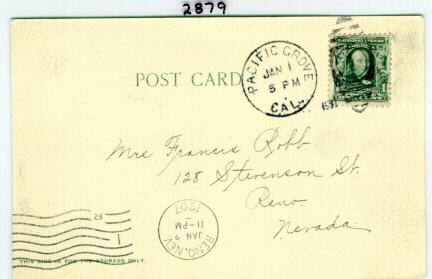 2879
POST CARD
PACIFIC GROVE
JAN 1
5 PM
CAL.
1
Mrs Francis Robb
128 Stevenson St.
Reno.
Nevada.
RENO, NEV.
JAN 2
11-PM
1907
THIS SIDE IS FOR THE ADDRESS ONLY.